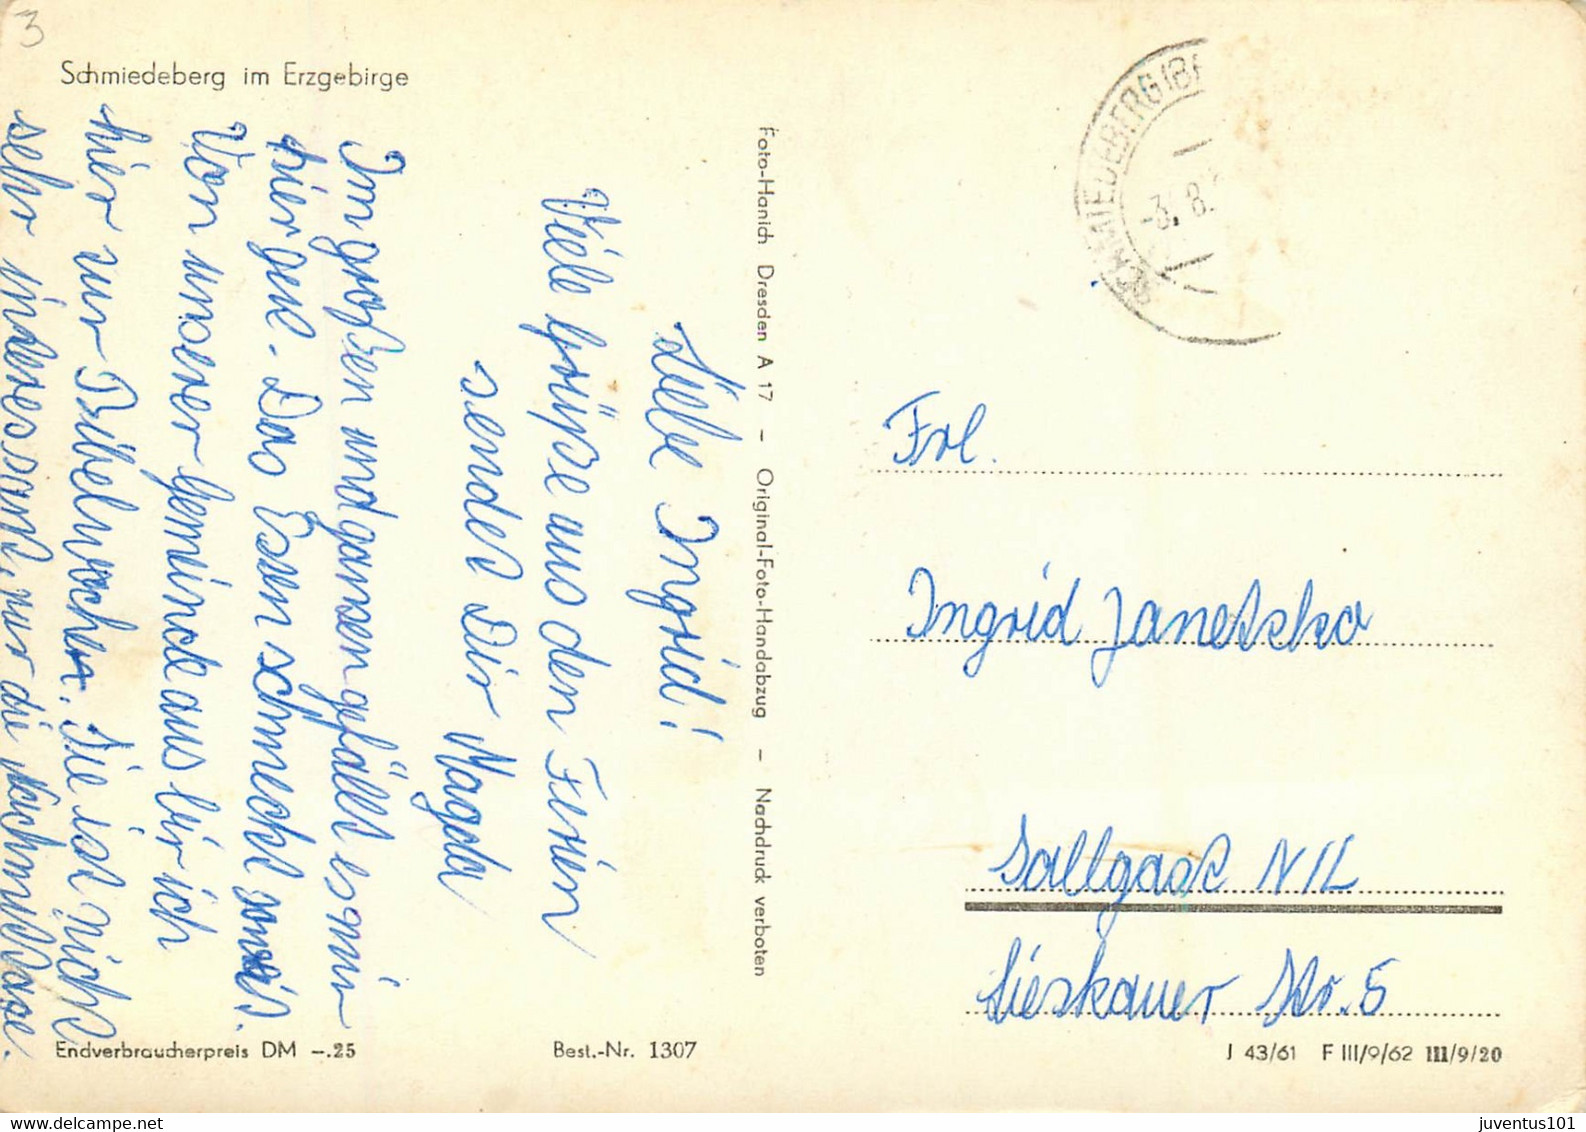 3
Schmiedeberg im Erzgebirge
Liebe Ingrid!
Viele Grüße aus den Ferien
sendet Dir Magda
Im großen und ganzen gefällt es mir
hier gut. Das Essen schmeckt
Von unserer Gemeinde aus bir ich
hier zur Bibelwochen. Sie ist nicht
sehr interessant, nur die Nachmittage.
Foto-Hanich Dresden A 17 – Original-Foto-Handabzug – Nachdruck verboten
SCHMIEDEBERG (B
-3. 8.
Frl.
Ingrid Janetzko
Sallgast N/L
Lieskauer Str. 5
Endverbraucherpreis DM –.25
Best.-Nr. 1307
J 43/61 F III/9/62 III/9/20
juventus101